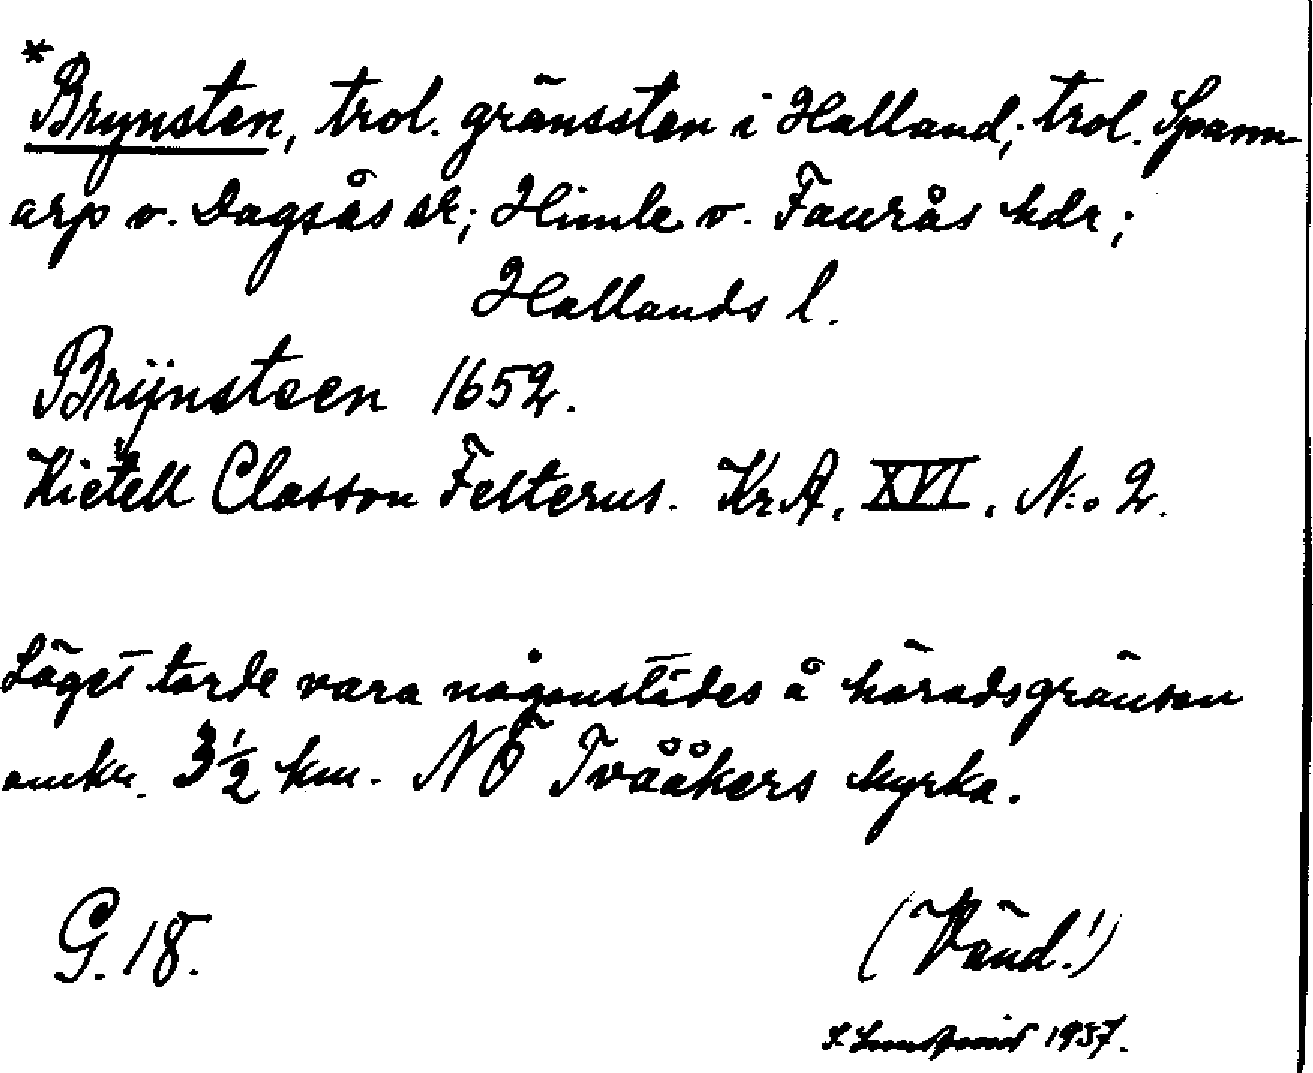 *Brynsten, trol. gränssten i Halland; trol. Spann-
arp o. Dagsås sr; Himle o. Faurås hdr;
Hallands l.
Brÿnsteen 1652.
Kietell Classon Felterus. Kr.A. XVI. N:o 2.
Läget torde vara någonstädes å häradsgränsen
omkr. 3½ km. NÖ Tvååkers kyrka.
G. 18.
(Vänd!)
S. 1937.